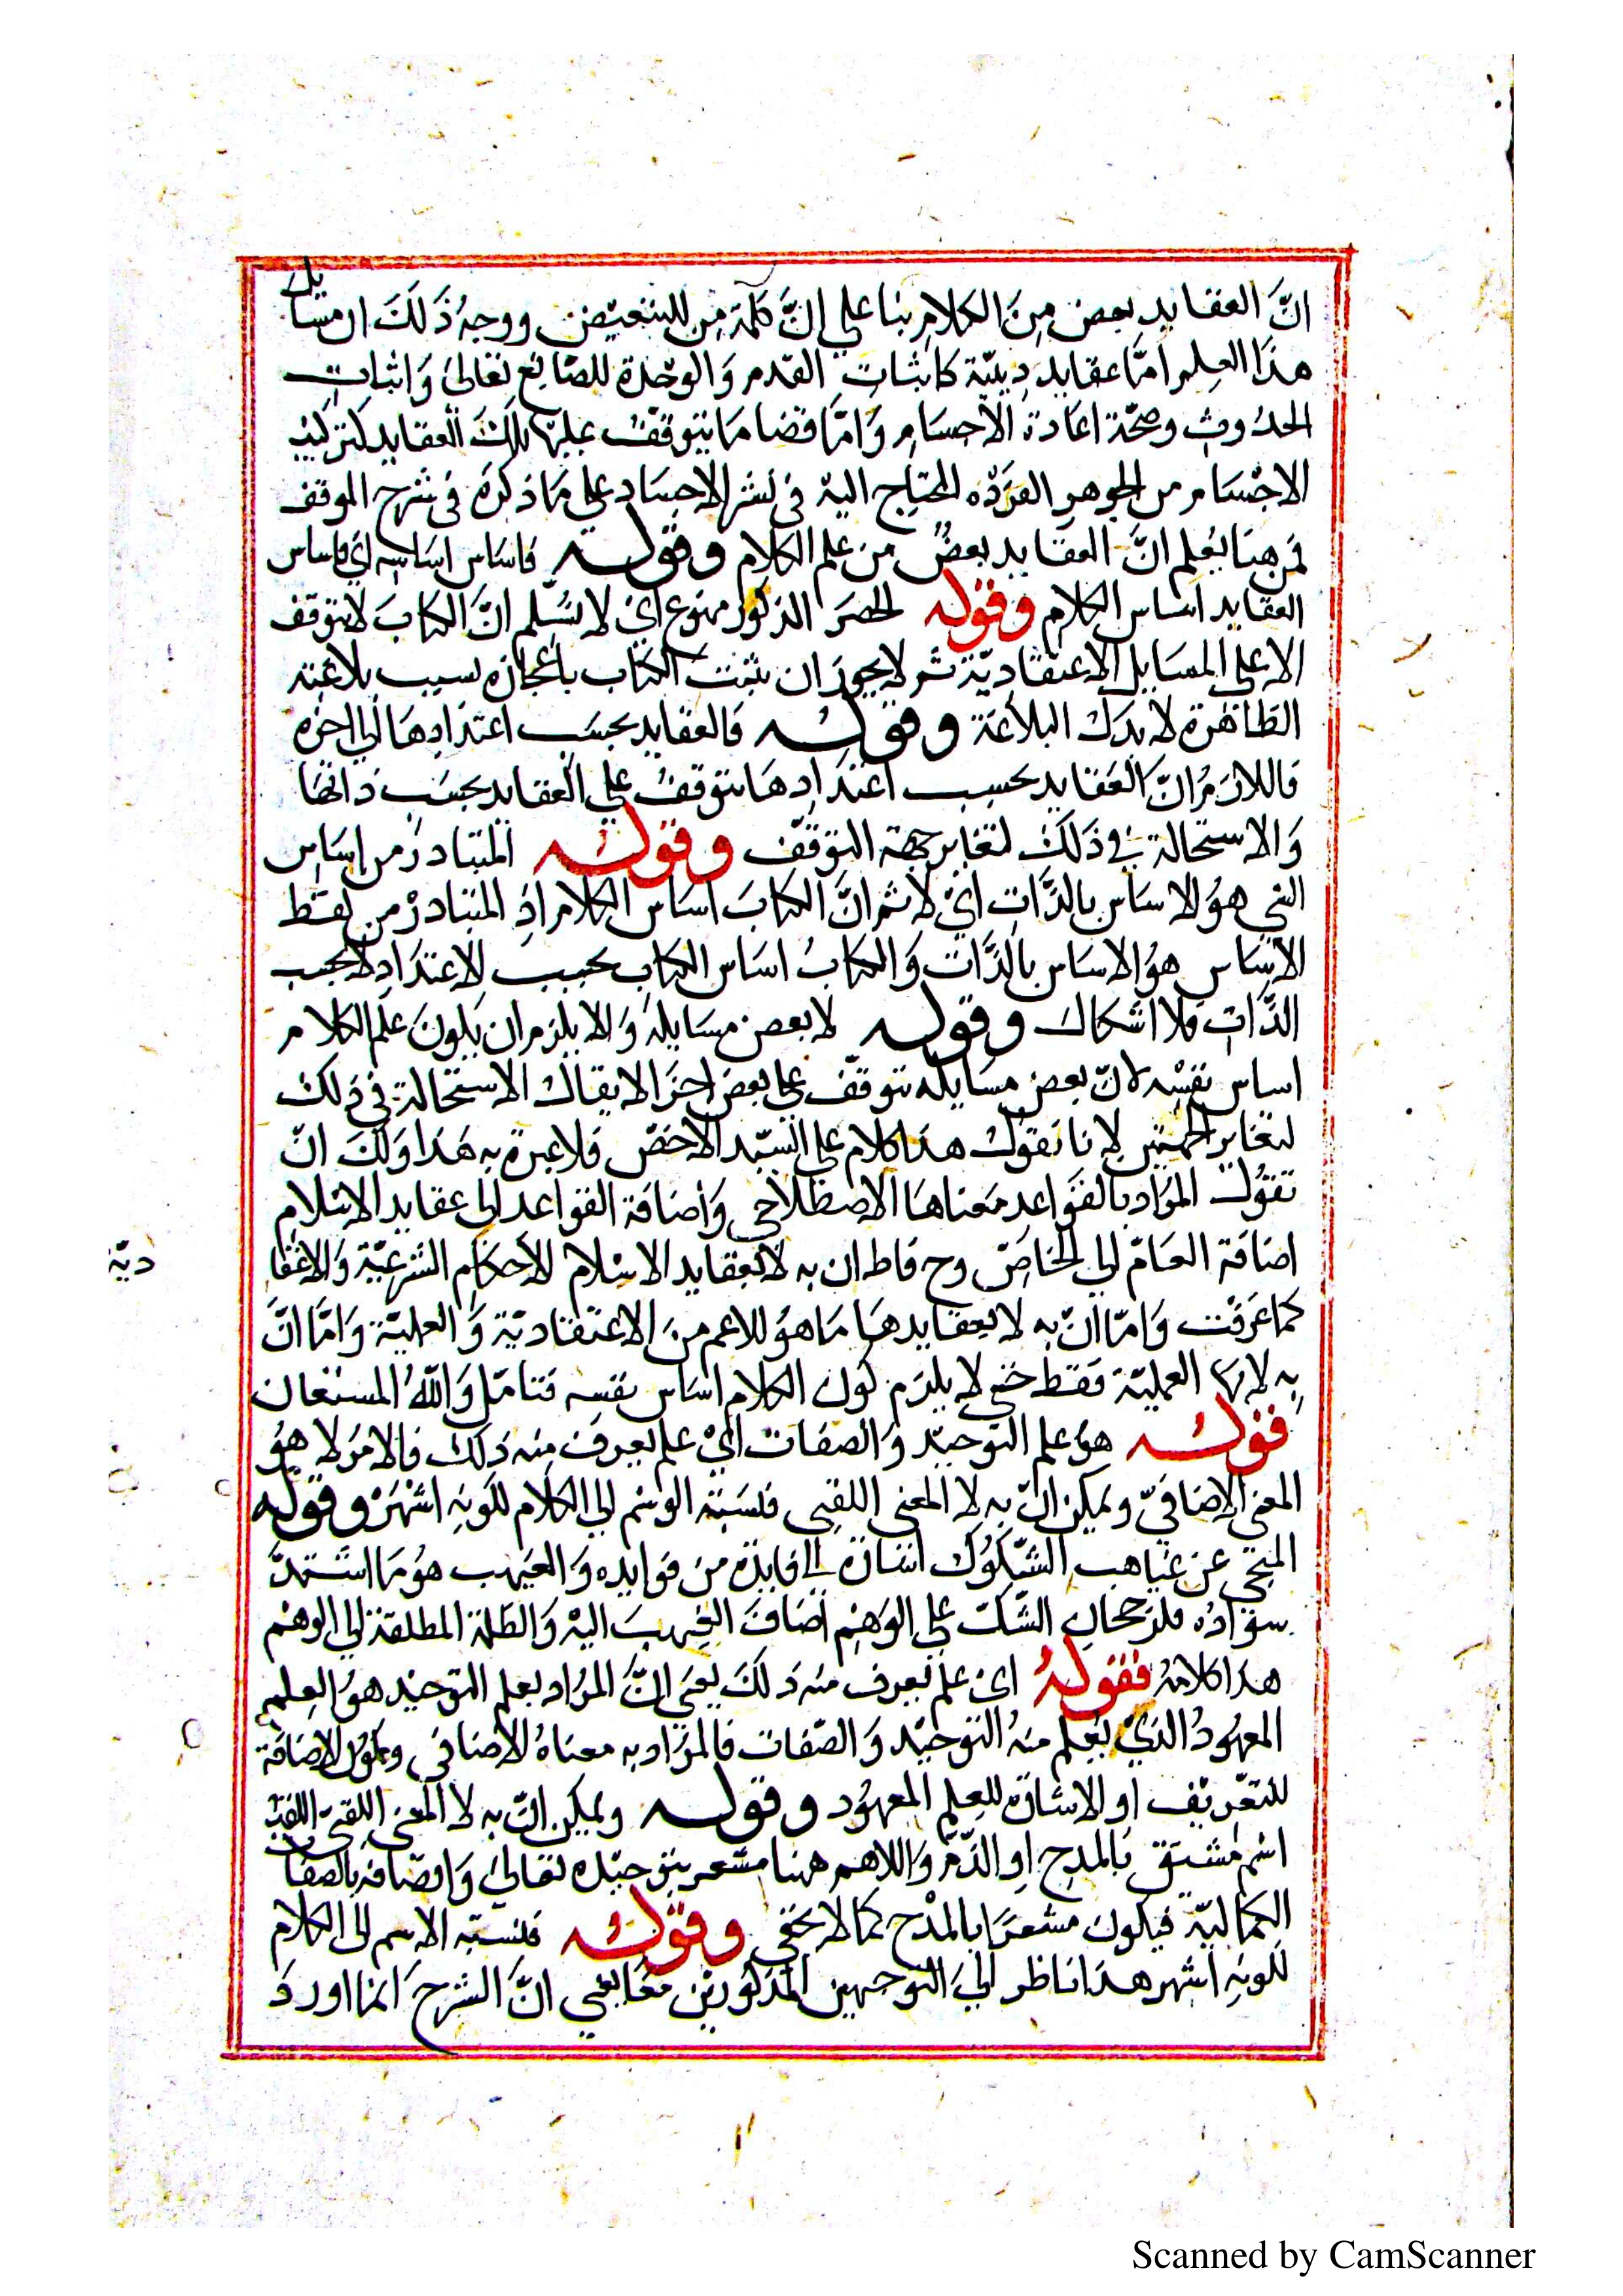 انّ العقايد بعض مِنَ الكلامِ بنا علي انّ كلمة مِن للتبعيض ووجهُ ذَلكَ ان مسايل
هذا العِلم امّا عقايد دِينيّة كاثبات القدم وَالوحدة للصّانع تعَالى وَاثبات
الحدوث وصحّة اعادة الأجسام وَامّا قضايا يتوقف عليها تلك العقايد كتركيب
الاجْسَام من الجوهر الفرْده المحتاج اليه في نشر الاجساد علي مَا ذكرَه في شرح الموقف
فمن هنا يُعلم انَّ العقايد بعضٌ من علم الكلام وقوله فاساس اساسه اي فاساس
العقايد اساس الكلام وقوله الحصرَ المذكور ممنوع اي لا نسَلم انَّ الكتابَ لا يتوقف
الا على المسَايل الاعتقاديّة ثم لا يجوز ان يثبت الكتاب باعجازه بسبب بلاغته
الظاهرة لا يدرك البلاغة وقوله فالعقايد بحسَب اعتدَادِهَا الي اخره
فاللازمُ انَّ العَقايد بحسب اعتدَادِهَا تتوقفُ علي العقايد بحسَب ذاتها
وَالاستحالة في ذَلكَ لتغاير جهة التوقف وقوله المتبَادرُ من اساسِ
الشي هوُ الاساس بالذَّات ايْ لا ثم انَّ الكتابَ اسَاس الكلام اذِ المتبَادرْ من لفظ
الاساسِ هوُ الاساس بالذَّات وَالكتابُ اساس الكتاب بحسب الاعتدَاد لا بحسب
الذَّات فلا اشكال وقوله لا بعض مسَايله وَالا يلزم ان يكونَ علم الكلام
اساس نفسْه لانّ بعض مسَايله تتوقّف علي بعض اخر لا يقال الاستحالة في ذلك
لتغاير الجهتين لانا نقول هذا كلام علي السّند الاخصّ فلا عبرة به هَذا وَلكَ انْ
تقوُل المرَاد بالقوَاعد مَعناهَا الاصطلاحي وَاضافة القواعد الي عقايد الاسْلام
اضَافة العَامّ الي الخاصّ وح فاما ان به لا بعقايد الاسْلام الأحكام الشرعيّة وَالاعتقا
ديّة
كما عَرَفت وَامّا انّ به لا بعقايدهَا مَا هوُ الاعم منَ الاعتقاديّة وَ العمليّة وَامَّا انَّ
بِه لا بها العمليّة فقط حتي لا يلزم كون الكلام اساس نفسه فتامّل وَاللهُ المستعان
فقوله هوَ علم التوحيد وَالصفات ايْ علم يعرف مِنه ذَلكَ فالامرَ لا هوُ
المعني الاضَافيّ ويمكن انّ به لا المعني اللقبي فنسبَة الوسْم الي الكلام لكونِه اشهَرْ وقوله
المنجي عن غياهب الشّكوُك اشارة الي فايدة من فوايده وَالغيهب هوُ مَا اشتدَّ
سوَادُه فلرجحان الشّك علي الوَهْم اضَافَ الغيهبَ اليْه وَالظلمة المطلقة الي الوهْم
هذا كلامُه فقولهُ اي علم يعرف منه ذَلكَ يعني انَّ المرَاد بعلم التوحيْد هوُ العِلم
المعهُودُ الذيْ يُعلم منهُ التوحيْد وَ الصّفات فالمرَاد بِه معناهُ الاضافي ويكوُن الاضَافة
للتعرِيْف او الاشارَة للعِلم المعهوُد وقوله ويمكن انّ به لا المعني اللقبي اللقبُ
اسْم مشتق بالمدِح او الذّم وَاللاهم ههنا مشعر بتوحيْده تعَالي وَاتصَافه بالصفَات
الكمَاليّة فيكون مشعرَا بالمدْح كما لا يخفي وقوله فنسبَة الاسم الي الكلام
لكونِه اشهر هذا ناظر الي التوجهين المذكورَيْن معَا يعني انَّ الشرحَ انما اورَدَ